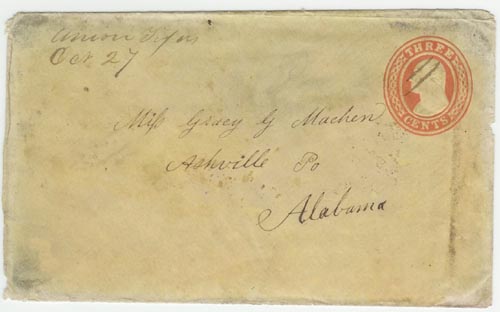 Union
Oct 27
THREE
CENTS
Miss Gracy G Machen
Ashville Po
Alabama